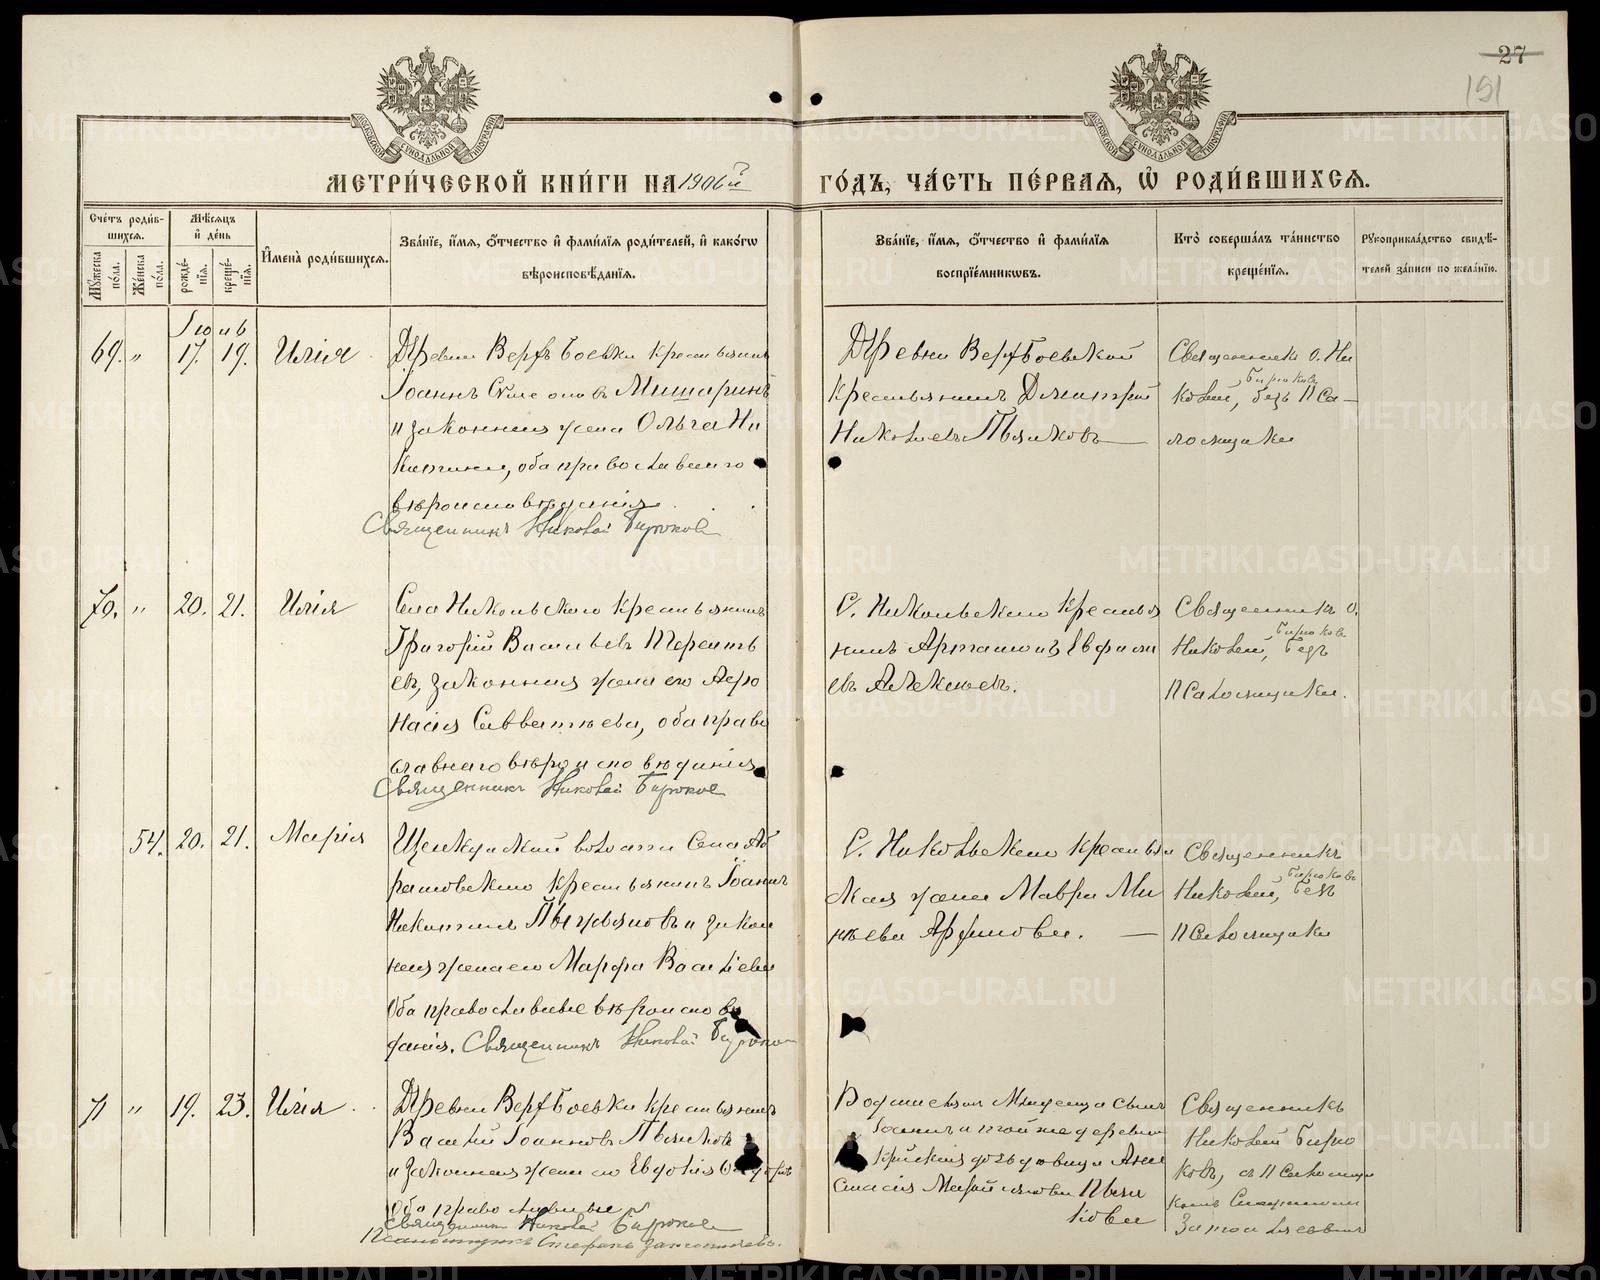 27
151
МЕТРИ́ЧЕСКОЙ КНИ́ГИ НА 1906й
ГО́ДЪ, ЧА́СТЬ ПЕ́РВАЯ, Ѡ҆ РОДИ́ВШИХСЯ.
Сче́тъ роди́в-
шихся.
Мѣ́сяцъ
и҆ де́нь
Мꙋ́жеска по́ла.
Же́нска по́ла.
рожде́-
нїя.
креще́-
нїя.
И҆мена̀ роди́вшихся.
Зва́нїе, и҆́мя, ѻ҆́тчество и҆ фами́лїя роди́телей, и҆ како́гѡ
вѣроисповѣ́данїя.
Зва́нїе, и҆́мя, ѻ҆́тчество и҆ фами́лїя
воспрїе́мникѡвъ.
Кто̀ соверша́лъ та́инство
креще́нїя.
Рꙋкоприкла́дство свидѣ́-
телей за́писи по жела́нїю.
Іюнь
69. " 17. 19. Илія
Деревни Верхъ Боевки крестьянинъ
Іоаннъ
Мишаринъ
и законная жена Ольга Ни
китина, оба православнаго
вѣроисповѣданія.
Священникъ Николай Бирюков
Деревни Верх Боевской
крестьянинъ Димитрій
Николаевъ Пьянковъ
Священникъ о. Ни
Бирюковъ
колай, безъ Пса-
ломщика
70. " 20. 21. Илія
Села Никольскаго крестьянинъ
Григорій Васильевъ Терентъ
евъ, законная жена его Аѳо
насія Савватѣева, оба право
славнаго вѣроисповѣданія
Священникъ Николай Бирюков
С. Никольскаго крестья
нинъ Артамонъ
евъ Алексѣевъ.
Священникъ о.
Бирюковъ
Николай, безъ
Псаломщика.
54. 20. 21. Марія
Щелкунской волости Села Аб
рамовскаго крестьянинъ Іоаннъ
Никитинъ и закон
ная жена его Марфа Васильева
Оба православнаго вѣроисповѣ
данія. Священникъ Николай Бирюков
С. Никольскаго крестьян
ская жена Мавра Ми
нѣева
Священникъ
Бирюковъ
Николай, безъ
Псаломщика
71 " 19. 23. Илія
Деревни Верх Боевки крестьянинъ
Василій Іоанновъ Пьянков
и законная жена его Евдокія
Оба православные
Священникъ Николай Бирюков
Псаломщикъ Стефанъ
сынъ
Іоаннъ и той же деревни
крестьянская дочь дѣвица Ана
стасія Пьян
кова
Священникъ
Николай Бирю
ковъ, съ Псаломщи
комъ Стефаномъ